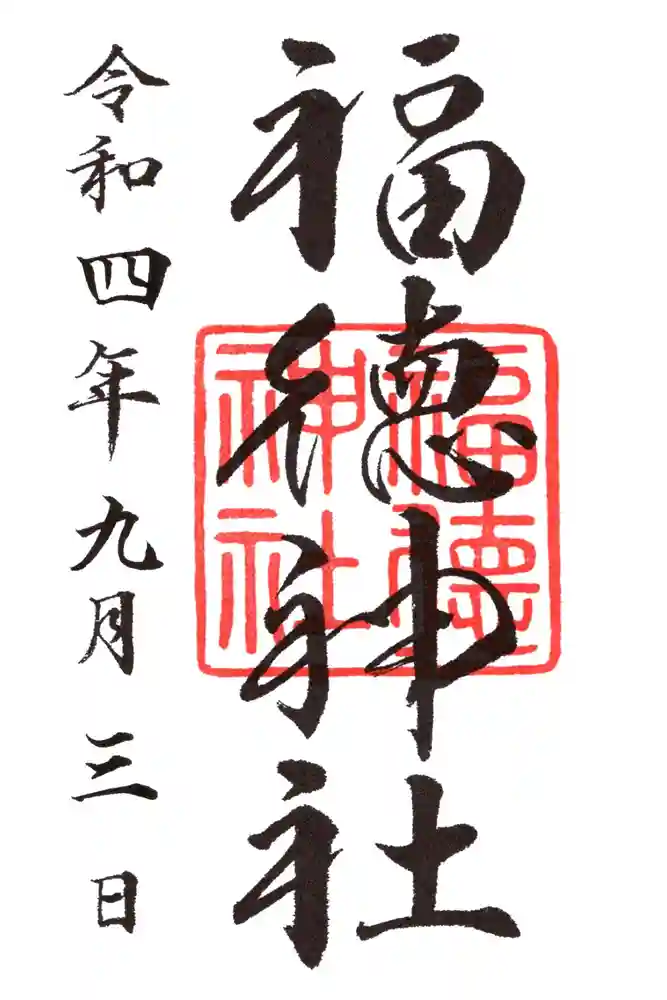 福德神社
福德
神社
令和四年九月三日